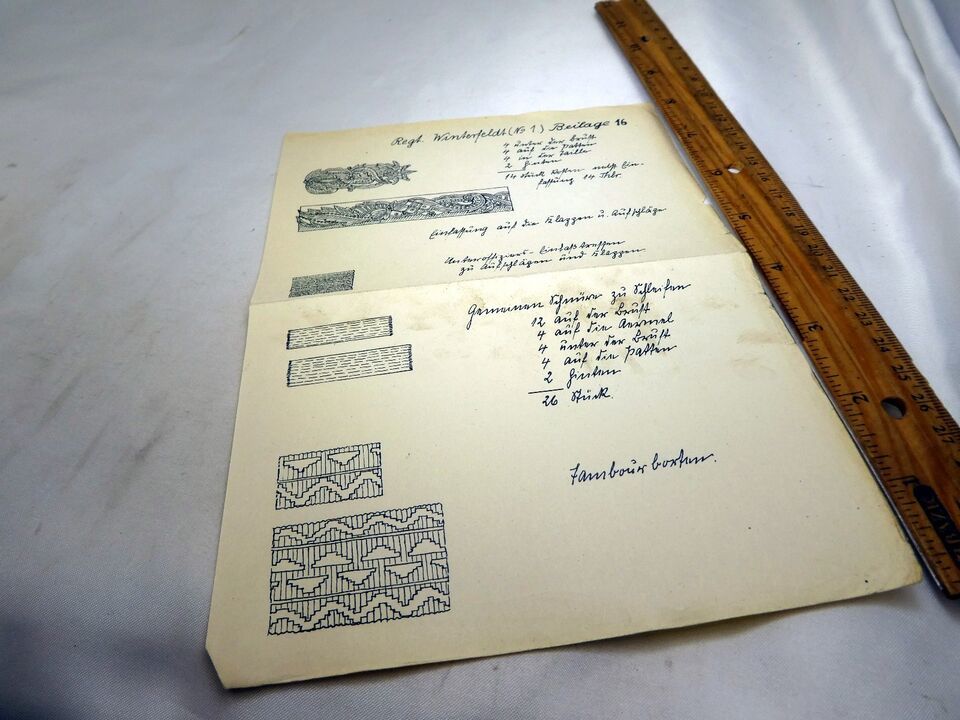 Regt. Winterfeldt (No 1) Beilage 16
4 unter der Brust
4 auf die Patten
4 in der Taille
2 hinten
14 Stück kosten nebst Ein-
fassung 14 Thlr.
Einfassung auf die Klappen u. Aufschläge
Unteroffiziers-Einfaßtressen
zu Aufschlägen und Klappen
Gemeinen Schnüre zu Schleifen
12 auf der Brust
4 auf die Aermel
4 unter der Brust
4 auf die Patten
2 hinten
26 Stück.
Tambour borten.